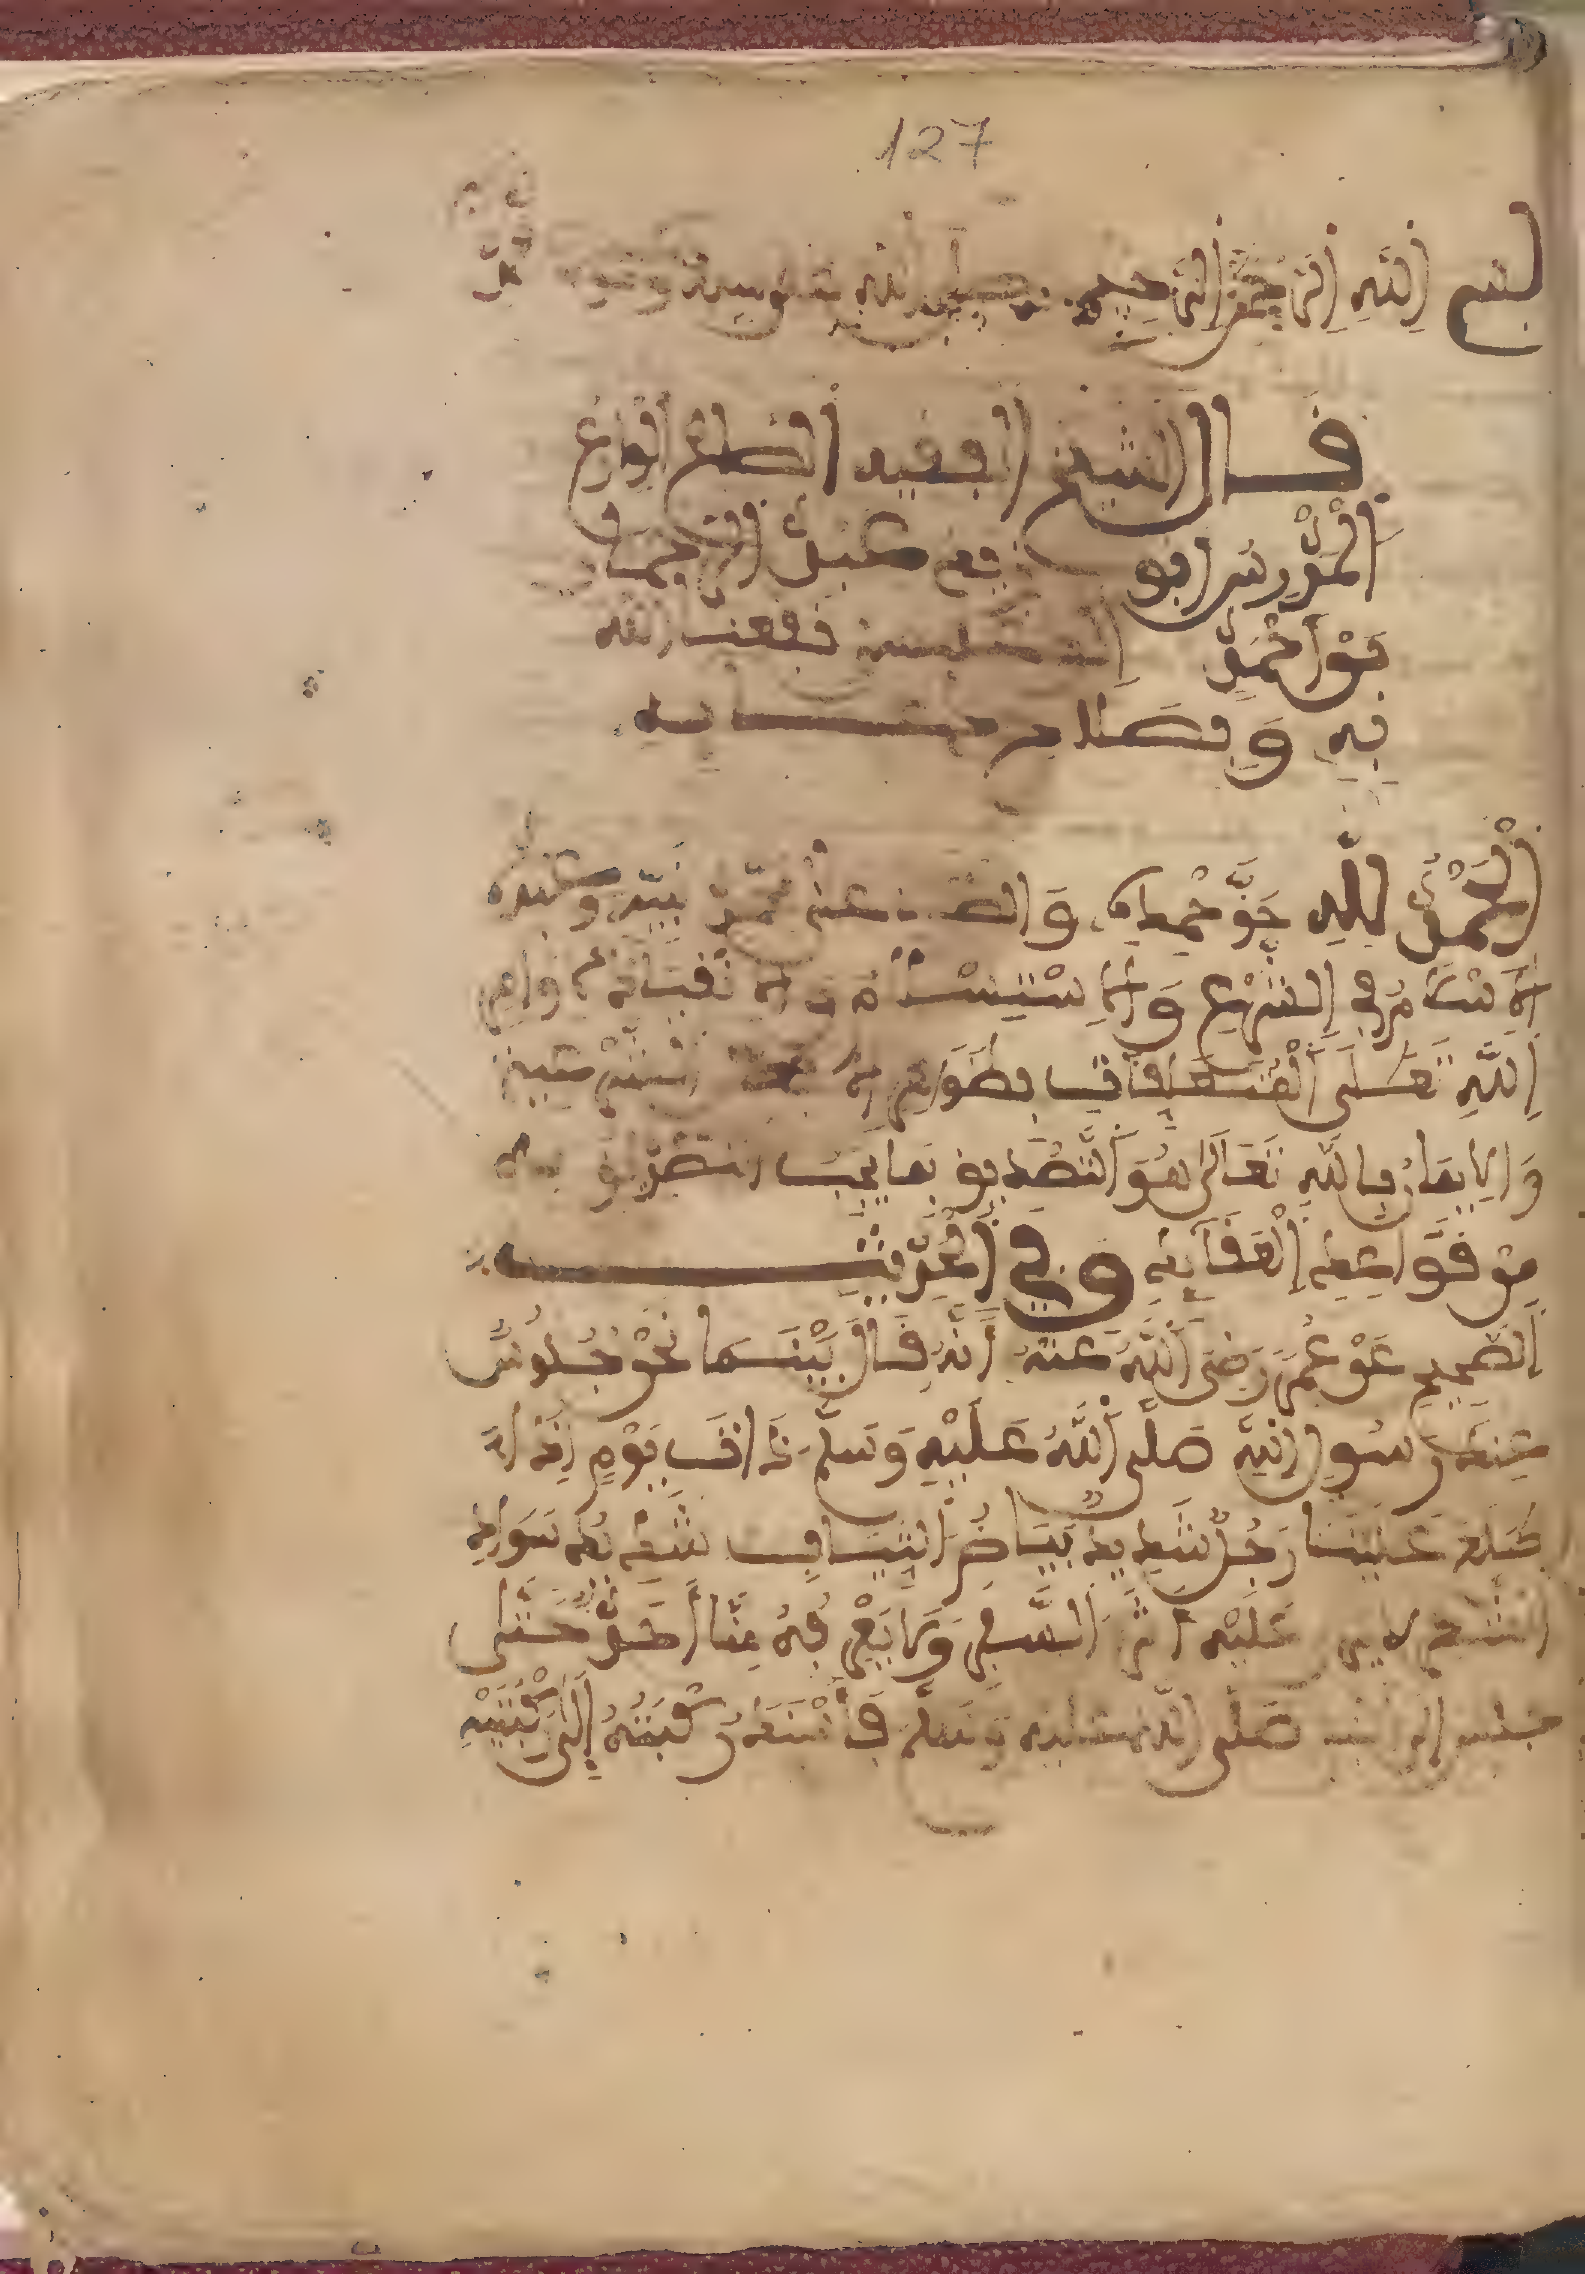 127
بسم الله الرحمن الرحيم صلى الله على سيدنا محمد
قال الشيخ الفقيه الصالح الورع
المدرس ابو عبد الرحمان
بن أحمد نفعنا الله
به وبصلاح
الحمد لله حق حمده والصلاة على محمد نبيه وعبده
الإسلام في الشرع والاستسلام
الله تعالى المتعلقات بظواهر
والإيمان بالله تعالى هو التصديق بما يجب التصديق به
من قواعد العقائد وفي الحديث
الصحيح عن عمر رضي الله عنه أنه قال بينما نحن جلوس
عند رسول الله صلى الله عليه وسلم ذات يوم إذ
طلع علينا رجل شديد بياض الثياب شديد سواد
الشعر لا يرى عليه أثر السفر ولا يعرفه منا أحد حتى
جلس إلى النبي صلى الله عليه وسلم فأسند ركبته إلى ركبتيه